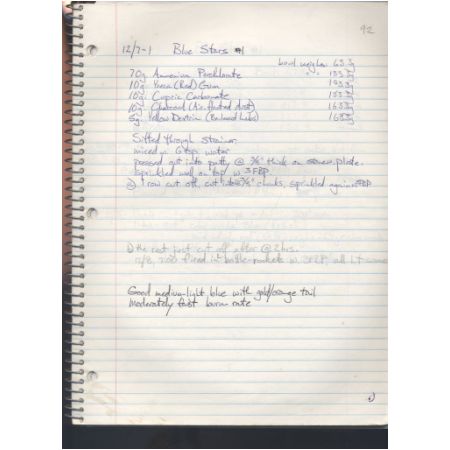 92
12/7-1 Blue Stars #1
bowl weighs 63.3g
70g Ammonium Perchlorate " " 133.3g
10g Red Gum
10g Cupric Carbonate 153.3g
10g Charcoal (Air floated dust) 163.3g
5g Yellow Dextrin 168.3g
Sifted through strainer
mixed w tap water
pressed out into patty @ 3/8" thick on plate.
sprinkled well on top w 3FBP
1 row cut off, cut into 3/8" chunks, sprinkled again
the rest just cut off after @ 2hrs.
12/8, fired in bottle rockets w. all lit
Good medium-light blue with gold/orange tail
Moderately fast burn rate